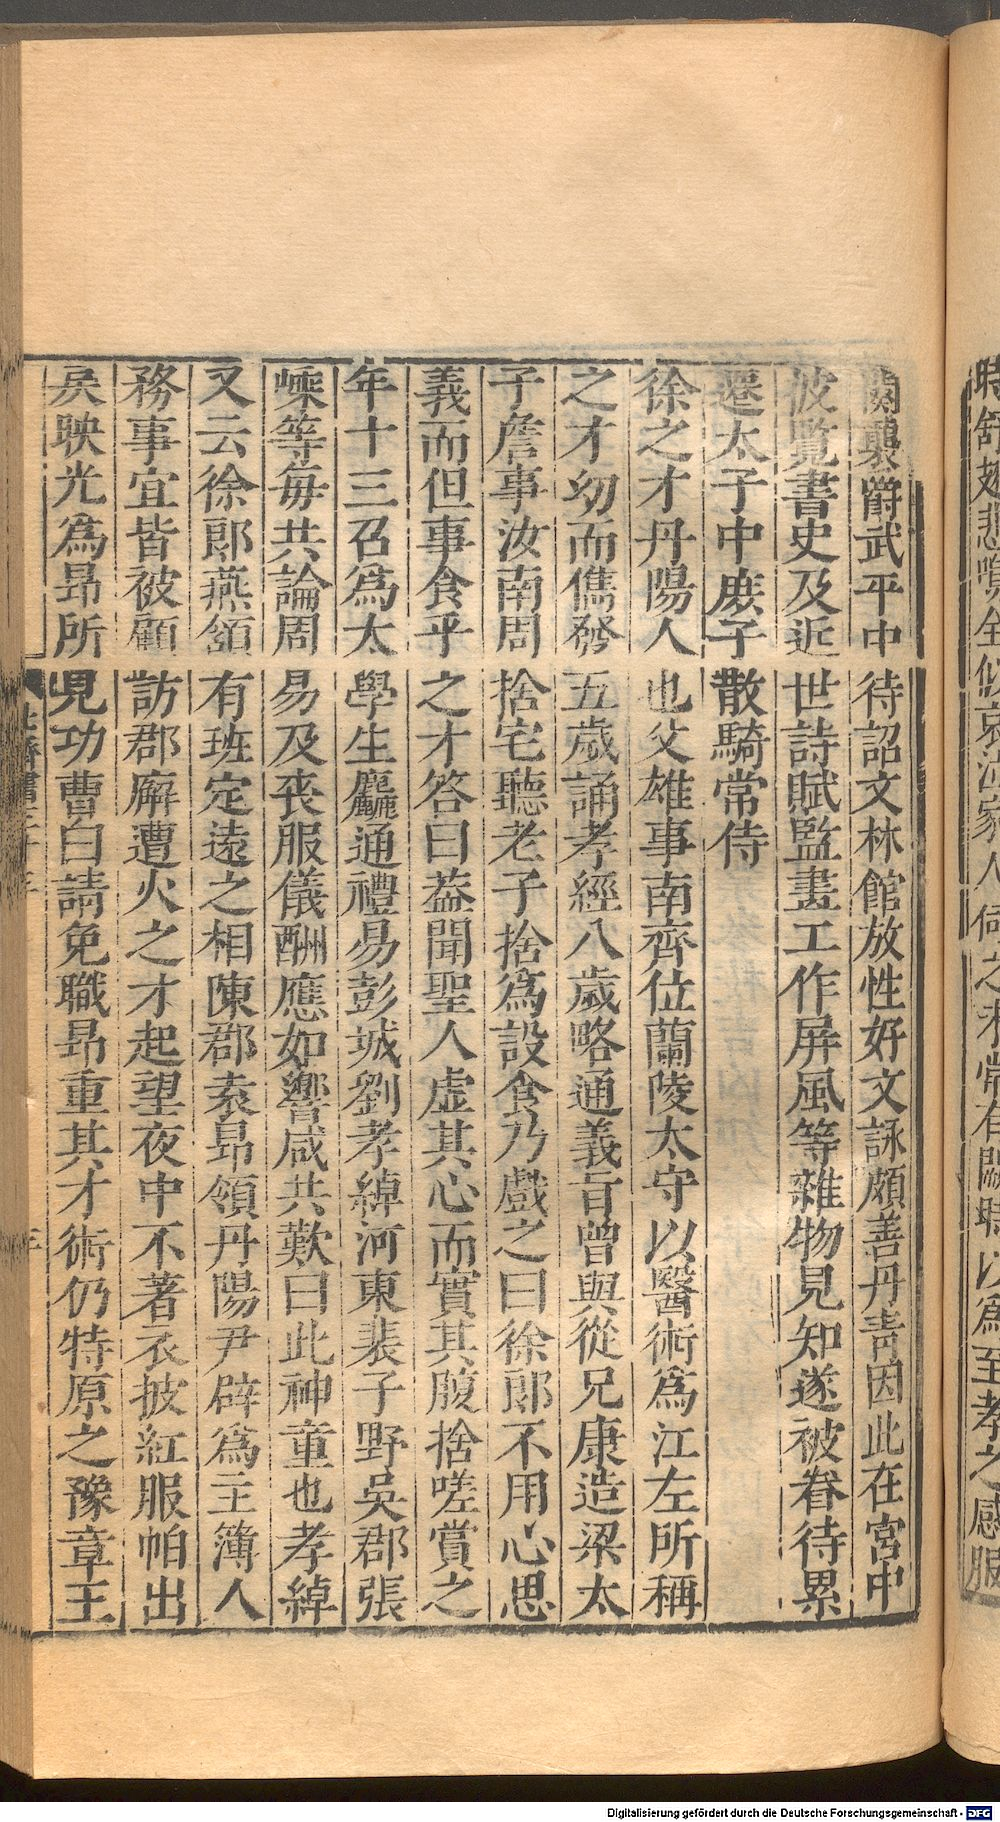 闕襲爵武平中待詔文林館放性好文詠頗善丹靑因此在宮中
披覽書史及近世詩賦監畫工作屏風等雜物見知遂被眷待累
遷太子中庶子散騎常侍
徐之才丹陽人也父雄事南齊位蘭陵太守以醫術爲江左所稱
之才幼而儁發五歲誦孝經八歲略通義旨曾與從兄康造梁太
子詹事汝南周捨宅聽老子捨爲設食乃戲之曰徐郎不用心思
義而但事食乎之才答曰葢聞聖人虛其心而實其腹捨嗟賞之
年十三召爲太學生麤通禮易彭城劉孝綽河東裴子野吳郡張
嵊等每共論周易及喪服儀酬應如響咸共歎曰此神童也孝綽
又云徐郎燕頷有班定遠之相陳郡袁昻領丹陽尹辟爲主簿人
務事宜皆被顧訪郡廨遭火之才起望夜中不著衣披紅服帕出
戾映光爲昻所見功曹白請免職昻重其才術仍特原之豫章王
Digitalisierung gefördert durch die Deutsche Forschungsgemeinschaft - DFG